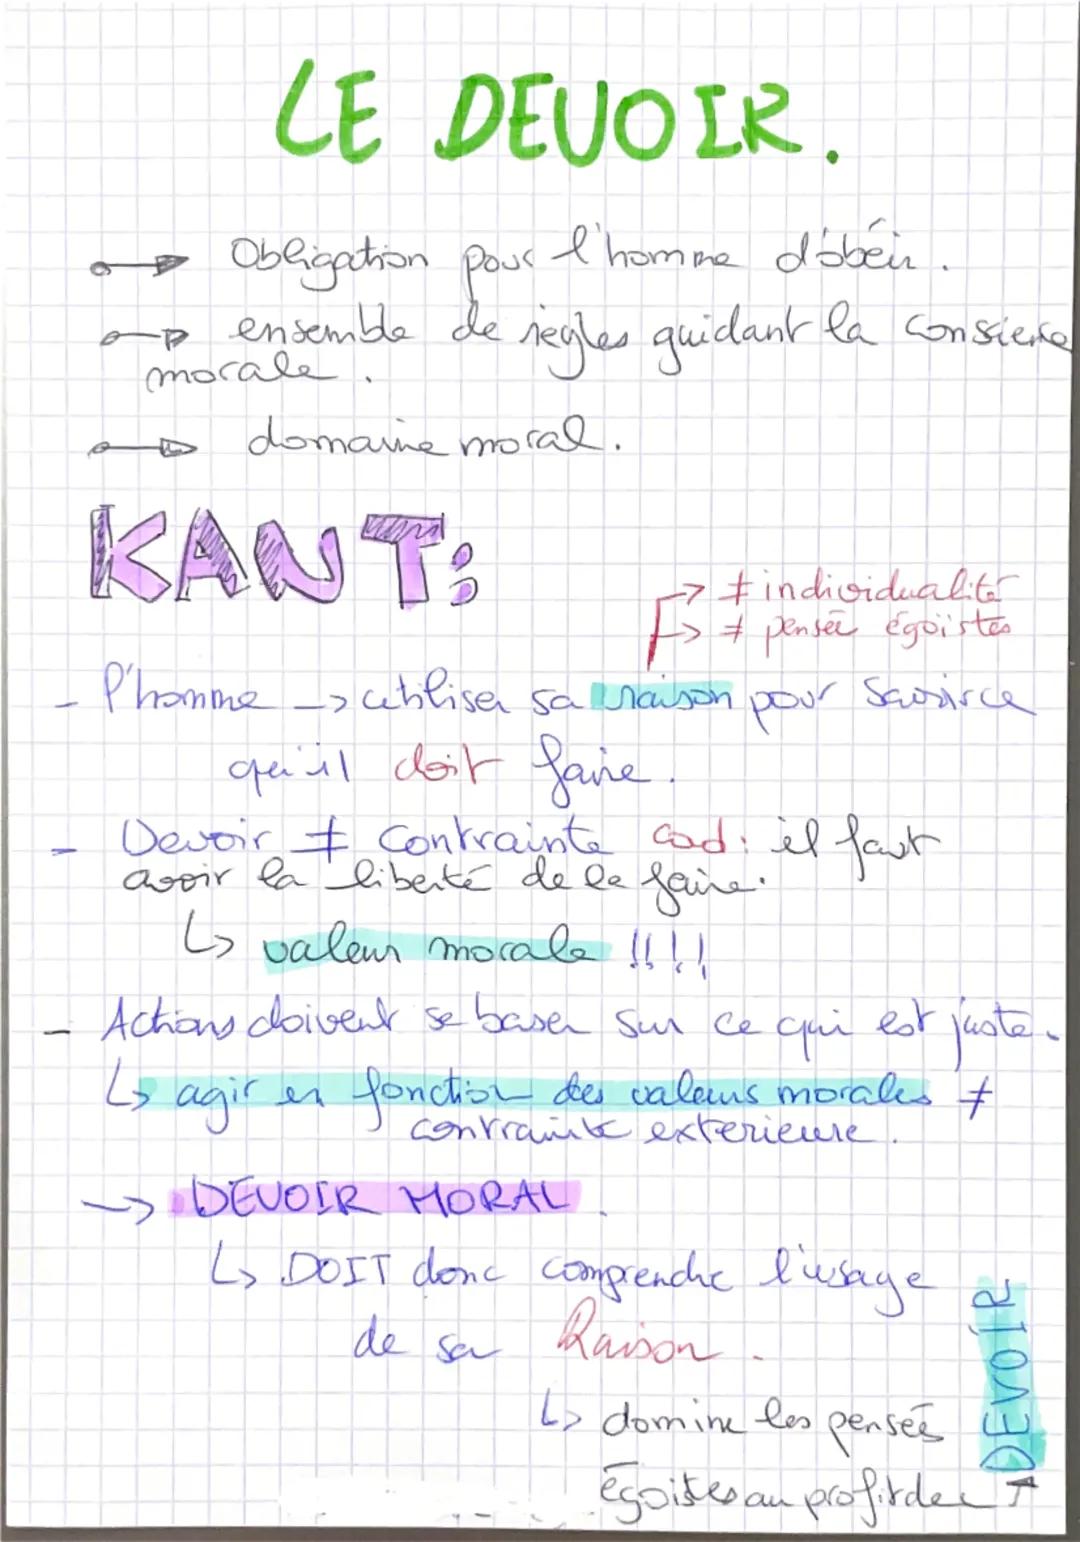 LE DEVOIR.
Obligation pour l'homme d'obéir.
ensemble de règles guidant la consience
morale.
domaine moral.
KANT:
→ ≠ individualité
→ ≠ pensée égoïstes
- l'homme → utiliser sa raison pour savoir ce
qu'il doit faire.
- Devoir ≠ Contrainte cad: il faut
avoir la liberté de le faire.
↳ valeur morale !!!!
- Actions doivent se baser sur ce qui est juste.
↳ agir en fonction des valeurs morales ≠
contrainte exterieure.
→ DEVOIR MORAL.
↳ DOIT donc comprendre l'usage
de sa Raison.
↳ domine les pensées
égoïstes au profit de
DEVOIR